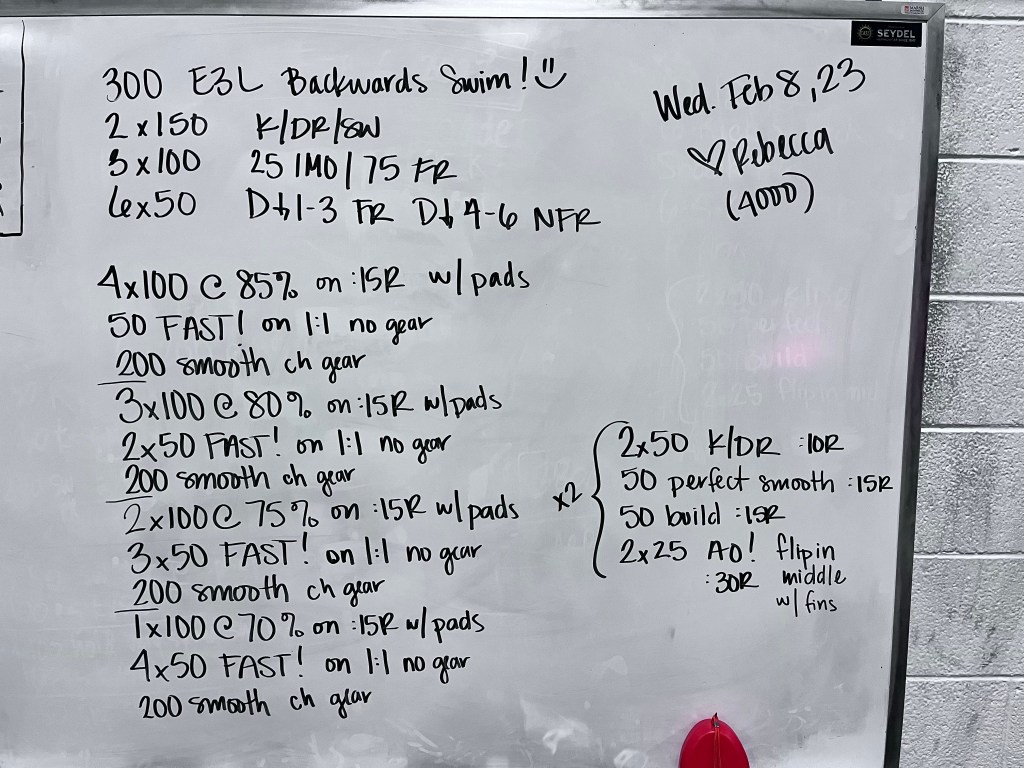 SEYDEL
300 E3L Backwards Swim!
2 x 150 K/DR/SW
3 x 100 25 IMO / 75 FR
6x50 D↓1-3 FR D↓4-6 NFR
4x100 @ 85% on :15R w/ pads
50 FAST! on 1:1 no gear
200 smooth ch gear
3x100 @ 80% on :15R w/pads
2x50 FAST! on 1:1 no gear
200 smooth ch gear
2x100 @ 75% on :15R w/ pads
3x50 FAST! on 1:1 no gear
200 smooth ch gear
1x100 @ 70% on :15R w/ pads
4x50 FAST! on 1:1 no gear
200 smooth ch gear
Wed. Feb 8, 23
♡ Rebecca
(4000)
x2
2x50 K/DR :10R
50 perfect smooth :15R
50 build :15R
2x25 AO! flip in
:30R middle
w/ fins